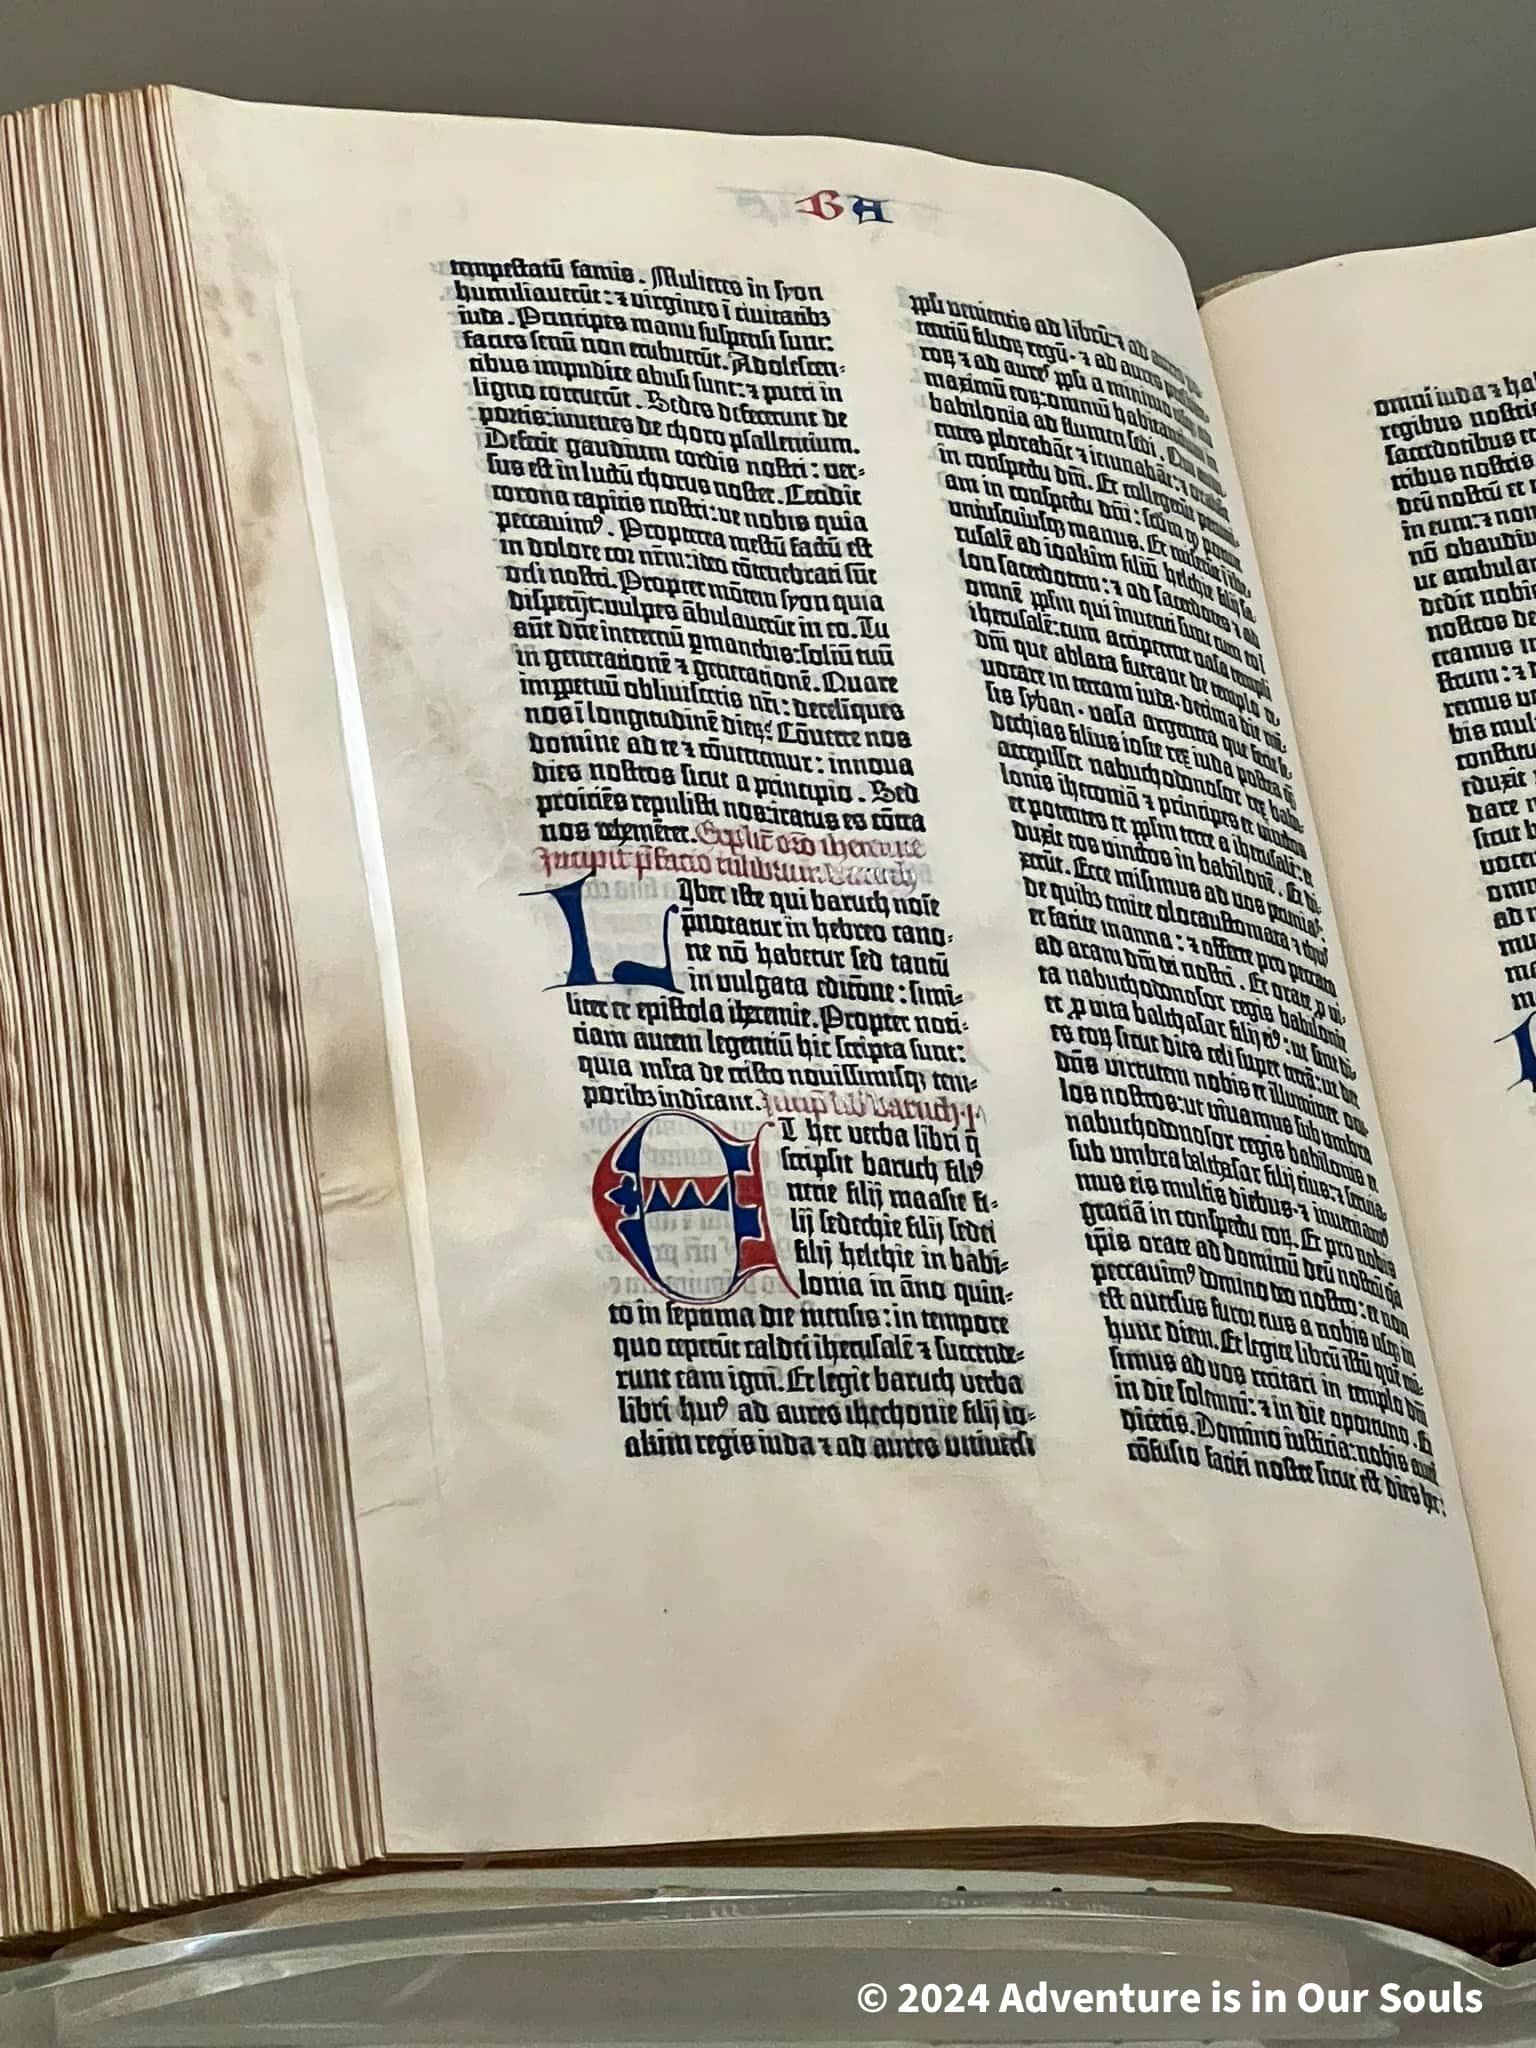 BA
tempestatū famis. Mulieres in syon
humiliauerūt: ⁊ virgines ī ciuitatibꝫ
iuda. Principes manu suspensi sunt:
facies senū non erubuerūt. Adolescen-
tibus impudice abusi sunt: ⁊ pueri in
ligno corruerūt. Sedes defecerunt de
portis: iuuenes de choro psallentium.
Defecit gaudium cordis nostri: ver-
sus est in luctū chorus noster. Cecidit
corona capitis nostri: ve nobis quia
peccauimꝰ. Propterea mestū factū est
in dolore cor nr̄m: ideo cōtenebrati sūt
oculi nostri. Propter mōtem syon quia
disperijt: vulpes ābulauerūt in eo. Tu
aūt dn̄e ineternū ꝑmanebis: soliū tuū
in generationē ⁊ generationē. Quare
imppetuū obliuisceris nr̄i: derelīques
nos ī longitudinē dieꝝ? Cōuerte nos
domine ad te ⁊ cōuertemur: innoua
dies nostros sicut a principio. Sed
proiciēs repulisti nos: iratus es cōtra
nos vehemēter. Explic̄ or̄o iheremie
Incipit p̄facio in librum Baruch
Liber iste qui baruch noīe
p̄notatur in hebreo cano-
ne nō habetur sed tantū
in vulgata editōne: simi-
liter et epistola iheremie. Propter noti-
ciam autem legentiū hic scripta sunt:
quia multa de cristo nouissimisqꝫ tem-
poribꝫ indicant. Incip̄ lib̄ baruch ·I·
ET hec verba libri q̄
scripsit baruch filiꝰ
nerie filij maasie fi-
lij sedechie filij sedei
filij helchie in babi-
lonia in āno quin-
to in septima die mensis: in tempore
quo ceperūt caldei iherusalē ⁊ succende-
runt eam igni. Et legit baruch verba
libri huiꝰ ad aures ihechonie filij io-
akim regis iuda ⁊ ad aures vniuersi
ppli venientis ad librū: ⁊ ad aures
tentiū filioꝝ regū· ⁊ ad aures
roꝝ ⁊ ad aures ppli a minimo usqꝫ
maximū eoꝝ: omniū habitantium in
babilonia ad flumen sedi. Qui
entes plorabāt ⁊ ieiunabāt: ⁊
in conspectu dn̄i. Et collegerūt pecuni-
am in conspectu dn̄i: scdm̄ ꝙ potuit
vniuscuiusqꝫ manus. Et miserūt in ihe-
rusalē ad ioakim filiū helchie filij sa-
lon sacerdotem: ⁊ ad sacerdotes ⁊ ad
omnē pplm qui inuenti sunt cum eo ī
iherusalē: cum acciperent vasa templi
dn̄i que ablata fuerant de templo re-
uocare in terram iuda· decima die mē-
sis syban· vasa argentea que fecit se-
dechias filius iosie rex iuda postea qͣ
accepisset nabuchodonosor rex babi-
lonis iheconiā ⁊ principes et cunctos
et potentes et pplm terre a iherusalē: et
duxit eos vinctos in babilonē. Et di-
xerūt. Ecce misimus ad vos pecunias:
de quibꝫ emite olocaustomata ⁊ thus
et facite manna: ⁊ offerte pro peccato
ad aram dn̄i dei nostri. Et orate ꝓ vi-
ta nabuchodonosor regis babilonie
et ꝓ vita balthasar filij eiꝰ: ut sint di-
es eoꝝ sicut dies celi super terrā: ut det
dn̄s virtutem nobis et illuminet ocu-
los nostros: ut viuamus sub umbra
nabuchodonosor regis babilonis et
sub umbra balthasar filij eius: ⁊ seruia-
mus eis multis diebus· ⁊ inueniamꝰ
gratiā in conspectu eoꝝ. Et pro nobis
ip̄is orate ad dominū deū nostrū: q̄a
peccauimꝰ domino deo nostro: et non
est auersus furor eius a nobis usqꝫ in
hunc diem. Et legite librū istū quē mi-
simus ad vos recitari in templo dn̄i
in die solemni: ⁊ in die oportuno. Et
dicetis. Domino iusticia: nobis autē
cōfusio faciei nostre sicut est dies hec:
omni iuda ⁊
regibus nostris
sacerdotibus
tribus nostris
deū nostrū et
in eum: ⁊ non
nō
ut
dedit
nostros de
© 2024 Adventure is in Our Souls